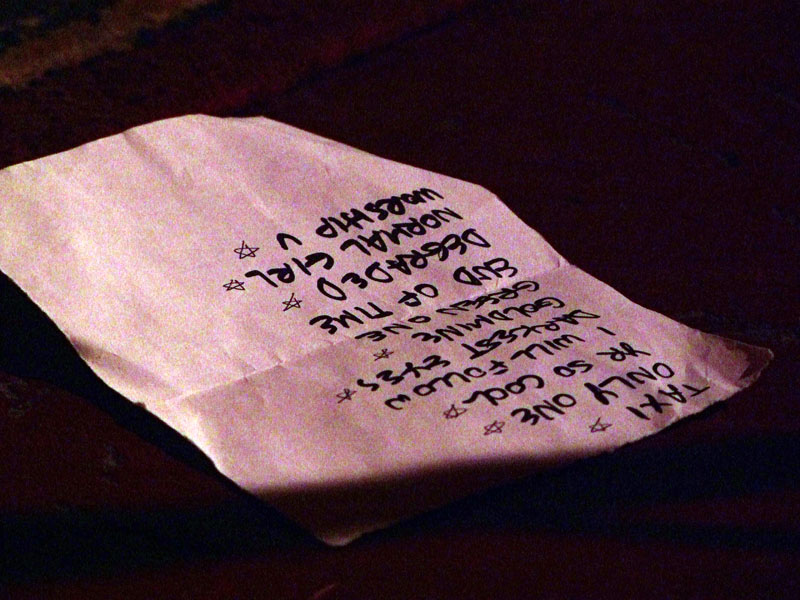 TAXI
ONLY ONE
YR SO COOL
I WILL FOLLOW
DARKEST EYES
GOLDMINE
GREEN ONE
END OF TIME
DEGRADED
NORMAL GIRL
WORSHIP U